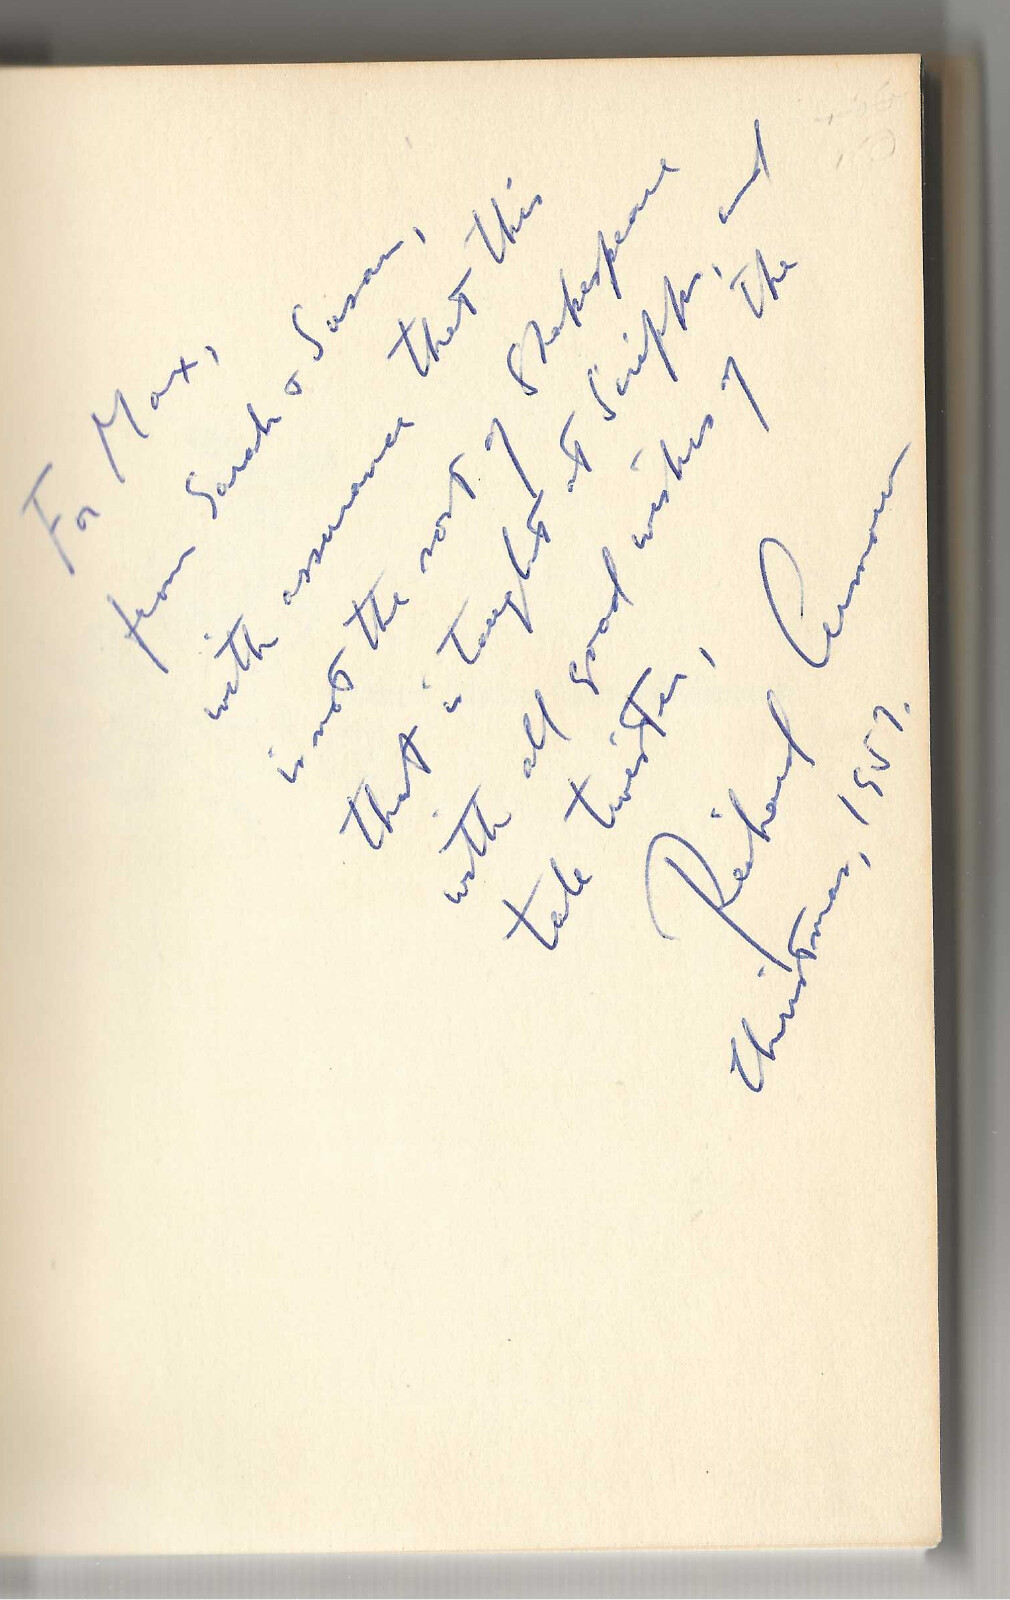 For Max,
from Sarah & Susan,
with assurance that this
is not the sort of Shakespeare
that is taught at Scripps, and
with all good wishes of the
tale twister,
Richard Armour
Christmas, 1957.